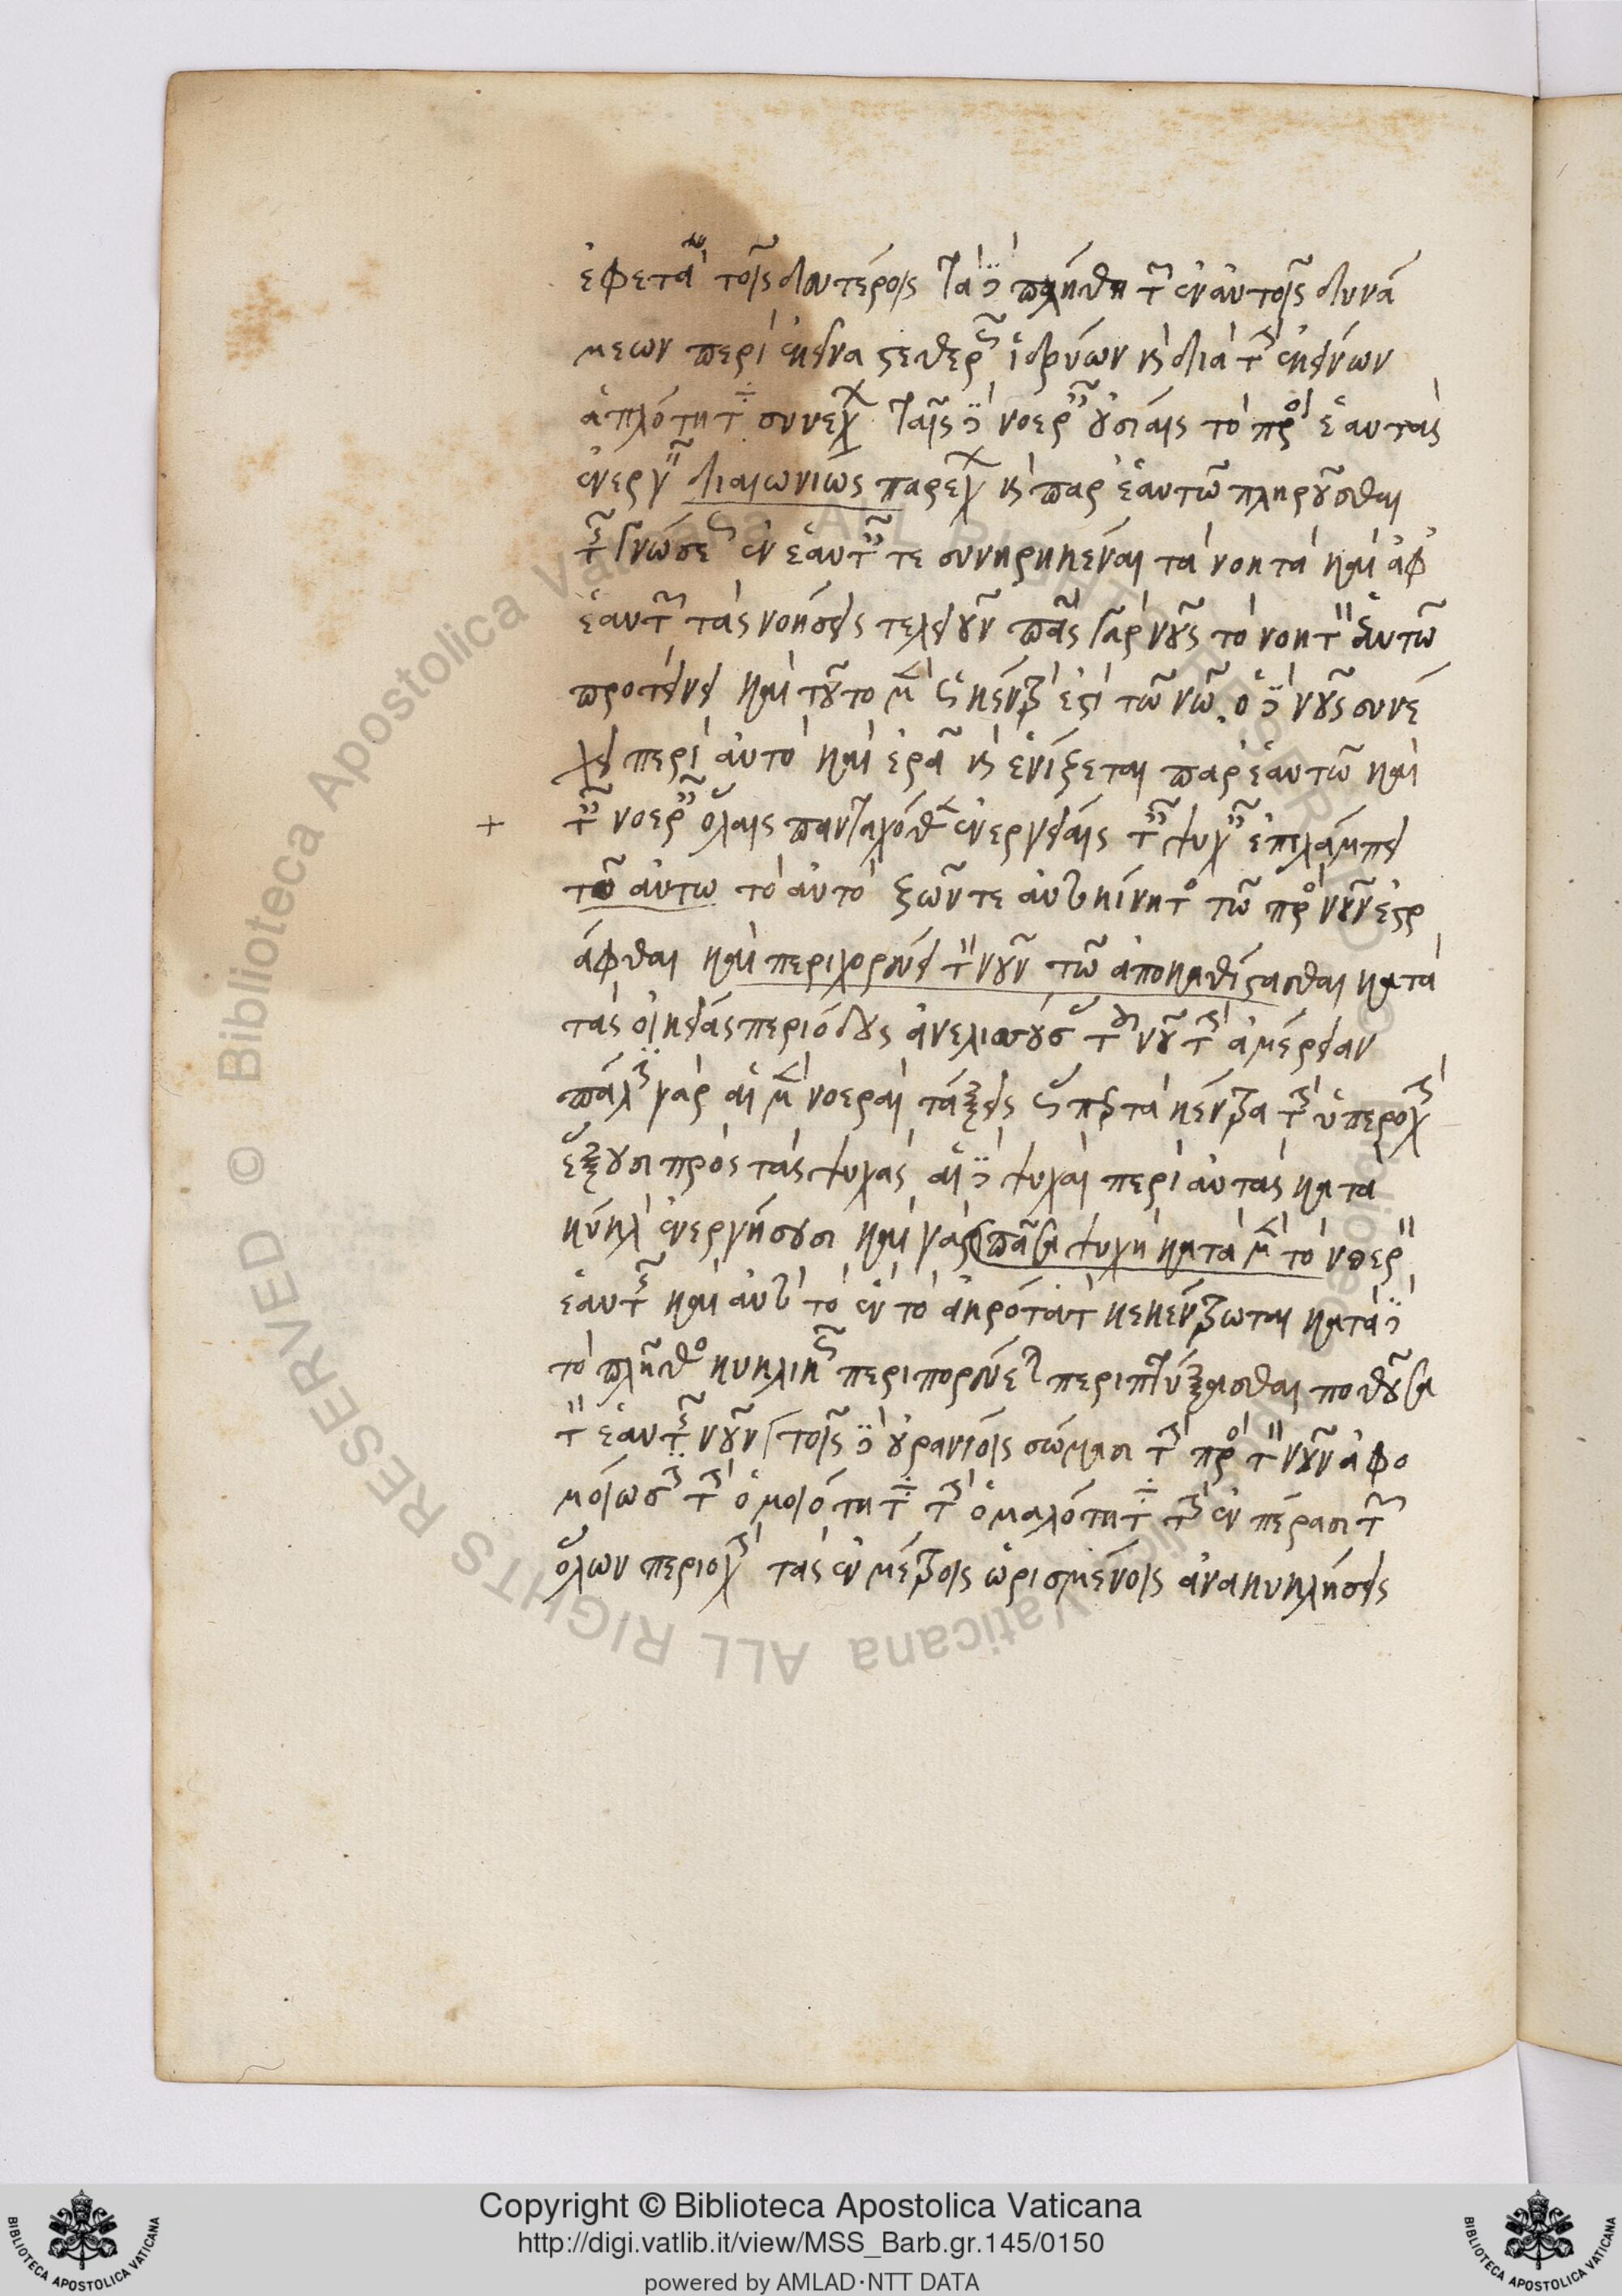 ἐφετὰ τοῖς δευτέροις τὰ δὲ πλήθη τῶν ἐν αὐτοῖς δυνά
μεων περὶ ἐκεῖνα σταθερῶς ἱδρύων καὶ διὰ τῆς ἐκείνων
ἁπλότητος συνέχων ταῖς δὲ νοεραῖς οὐσίαις τὸ πρὸς ἑαυτὰς
ἐνεργεῖν διαιωνίως παρέχων καὶ παρ' ἑαυτῶν πληροῦσθαι
τῆς γνώσεως ἐν ἑαυταῖς τε συνῃρηκέναι τὰ νοητὰ καὶ ἀφ'
ἑαυτῶν τὰς νοήσεις τελειοῦν πᾶς γὰρ νοῦς τὸ νοητὸν ἑαυτῷ
προτείνει καὶ τοῦτο μὲν ὡς κέντρον ἐστὶ τῷ νῷ. ὁ δὲ νοῦς συνέ
χει περὶ αὐτὸ καὶ ἐρᾷ καὶ ἑνίζεται παρ' ἑαυτῷ καὶ
ταῖς νοεραῖς ὅλαις πανταχόθεν ἐνεργείαις ταῖς ψυχαῖς ἐπιλάμπει
τῷ αὐτῷ τὸ αὐτὸ ζῶν τε αὐτοκίνητον τῷ πρὸς νοῦν ἐστρ
άφθαι καὶ περιχορεύει τὸν νοῦν τῷ ἀποκαθίστασθαι κατὰ
τὰς οἰκείας περιόδους ἀνελισσούσας τὴν τοῦ νοῦ τὴν ἀμέρειαν
πάλιν γὰρ αἱ μὲν νοεραὶ τάξεις ὥσπερ τὰ κέντρα τὴν ὑπεροχὴν
ἕξουσι πρὸς τὰς ψυχάς αἱ δὲ ψυχαὶ περὶ αὐτὰς κατὰ
κύκλον ἐνεργήσουσι καὶ γὰρ πᾶσα ψυχὴ κατὰ μὲν τὸ νοερὸν
ἑαυτῆς καὶ αὐτὸ τὸ ἓν τὸ ἀκρότατον κεκέντρωται κατὰ δὲ
τὸ πλῆθος κυκλικῶς περιπορεύεται περιπτύξασθαι ποθοῦσα
τὸν ἑαυτῆς νοῦν τοῖς δὲ οὐρανίοις σώμασι τὴν πρὸς τὸν νοῦν ἀφο
μοίωσιν τὴν ὁμοιότητος τὴν ὁμαλότητος τὴν ἐν πέρασι τῶν
ὅλων περιοχὴν τὰς ἐν μέτροις ὡρισμένοις ἀνακυκλήσεις
+
Copyright © Biblioteca Apostolica Vaticana
http://digi.vatlib.it/view/MSS_Barb.gr.145/0150
powered by AMLAD·NTT DATA
BIBLIOTECA APOSTOLICA VATICANA
BIBLIOTECA APOSTOLICA VATICANA